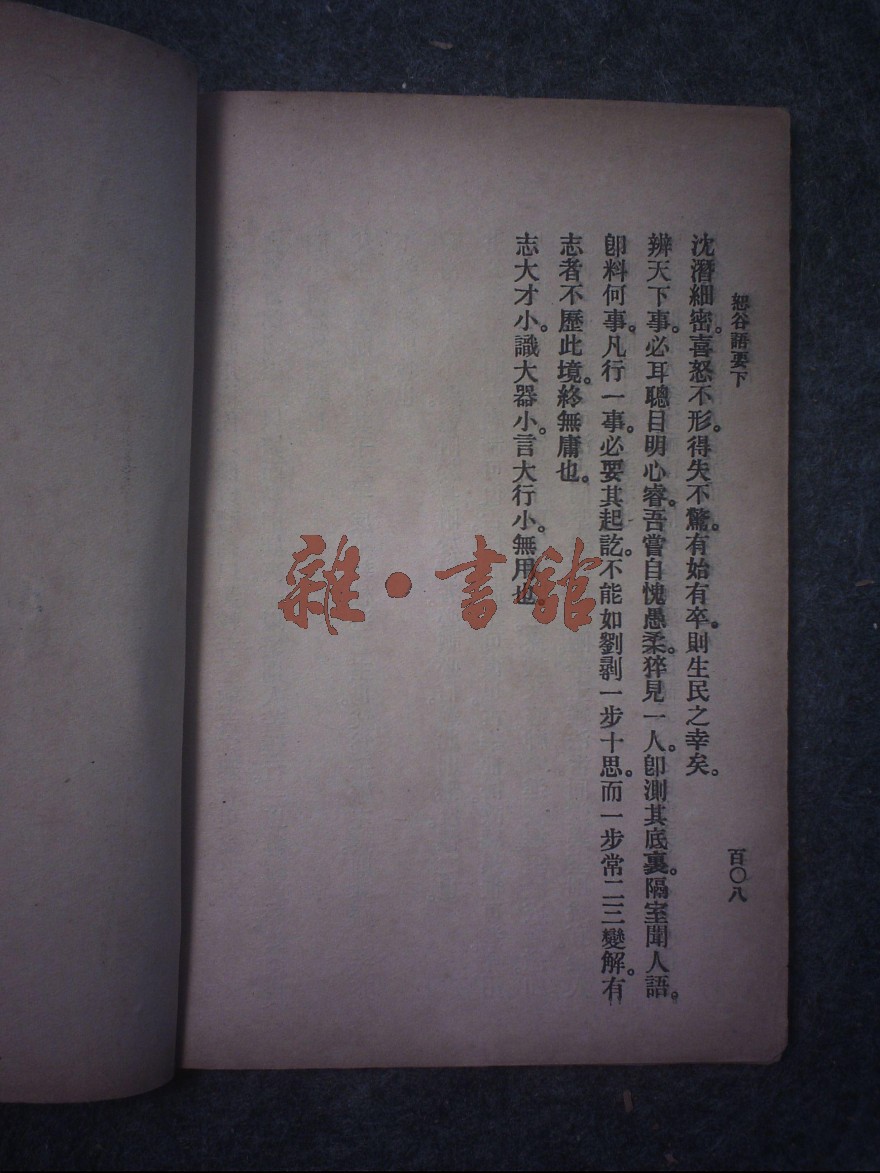 恕谷語要下
百〇八
沈潛細密。喜怒不形。得失不驚。有始有卒。則生民之幸矣。
辨天下事。必耳聰目明心睿。吾嘗自愧愚柔。猝見一人。卽測其底裏。隔室聞人語。
卽料何事。凡行一事。必要其起訖。不能如劉剥一步十思。而一步常二三變解。有
志者不歷此境。終無庸也。
志大才小。識大器小。言大行小。無用也。
雜·書館